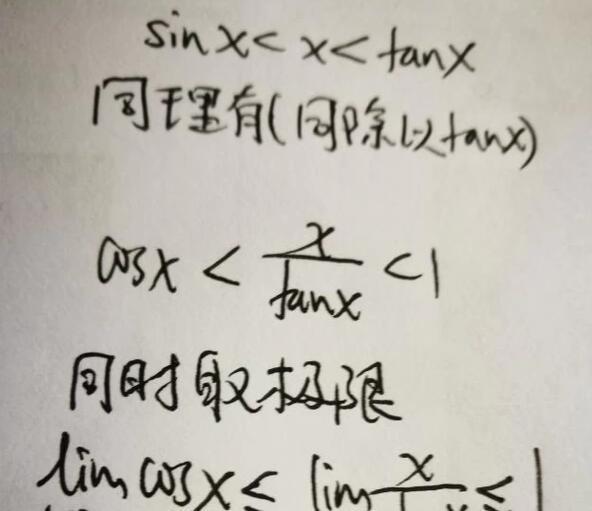 sinx<x<tanx
同理有(同除以tanx)
cosx < x/tanx <1
同时取极限
lim cosx≤ lim x/tanx ≤1